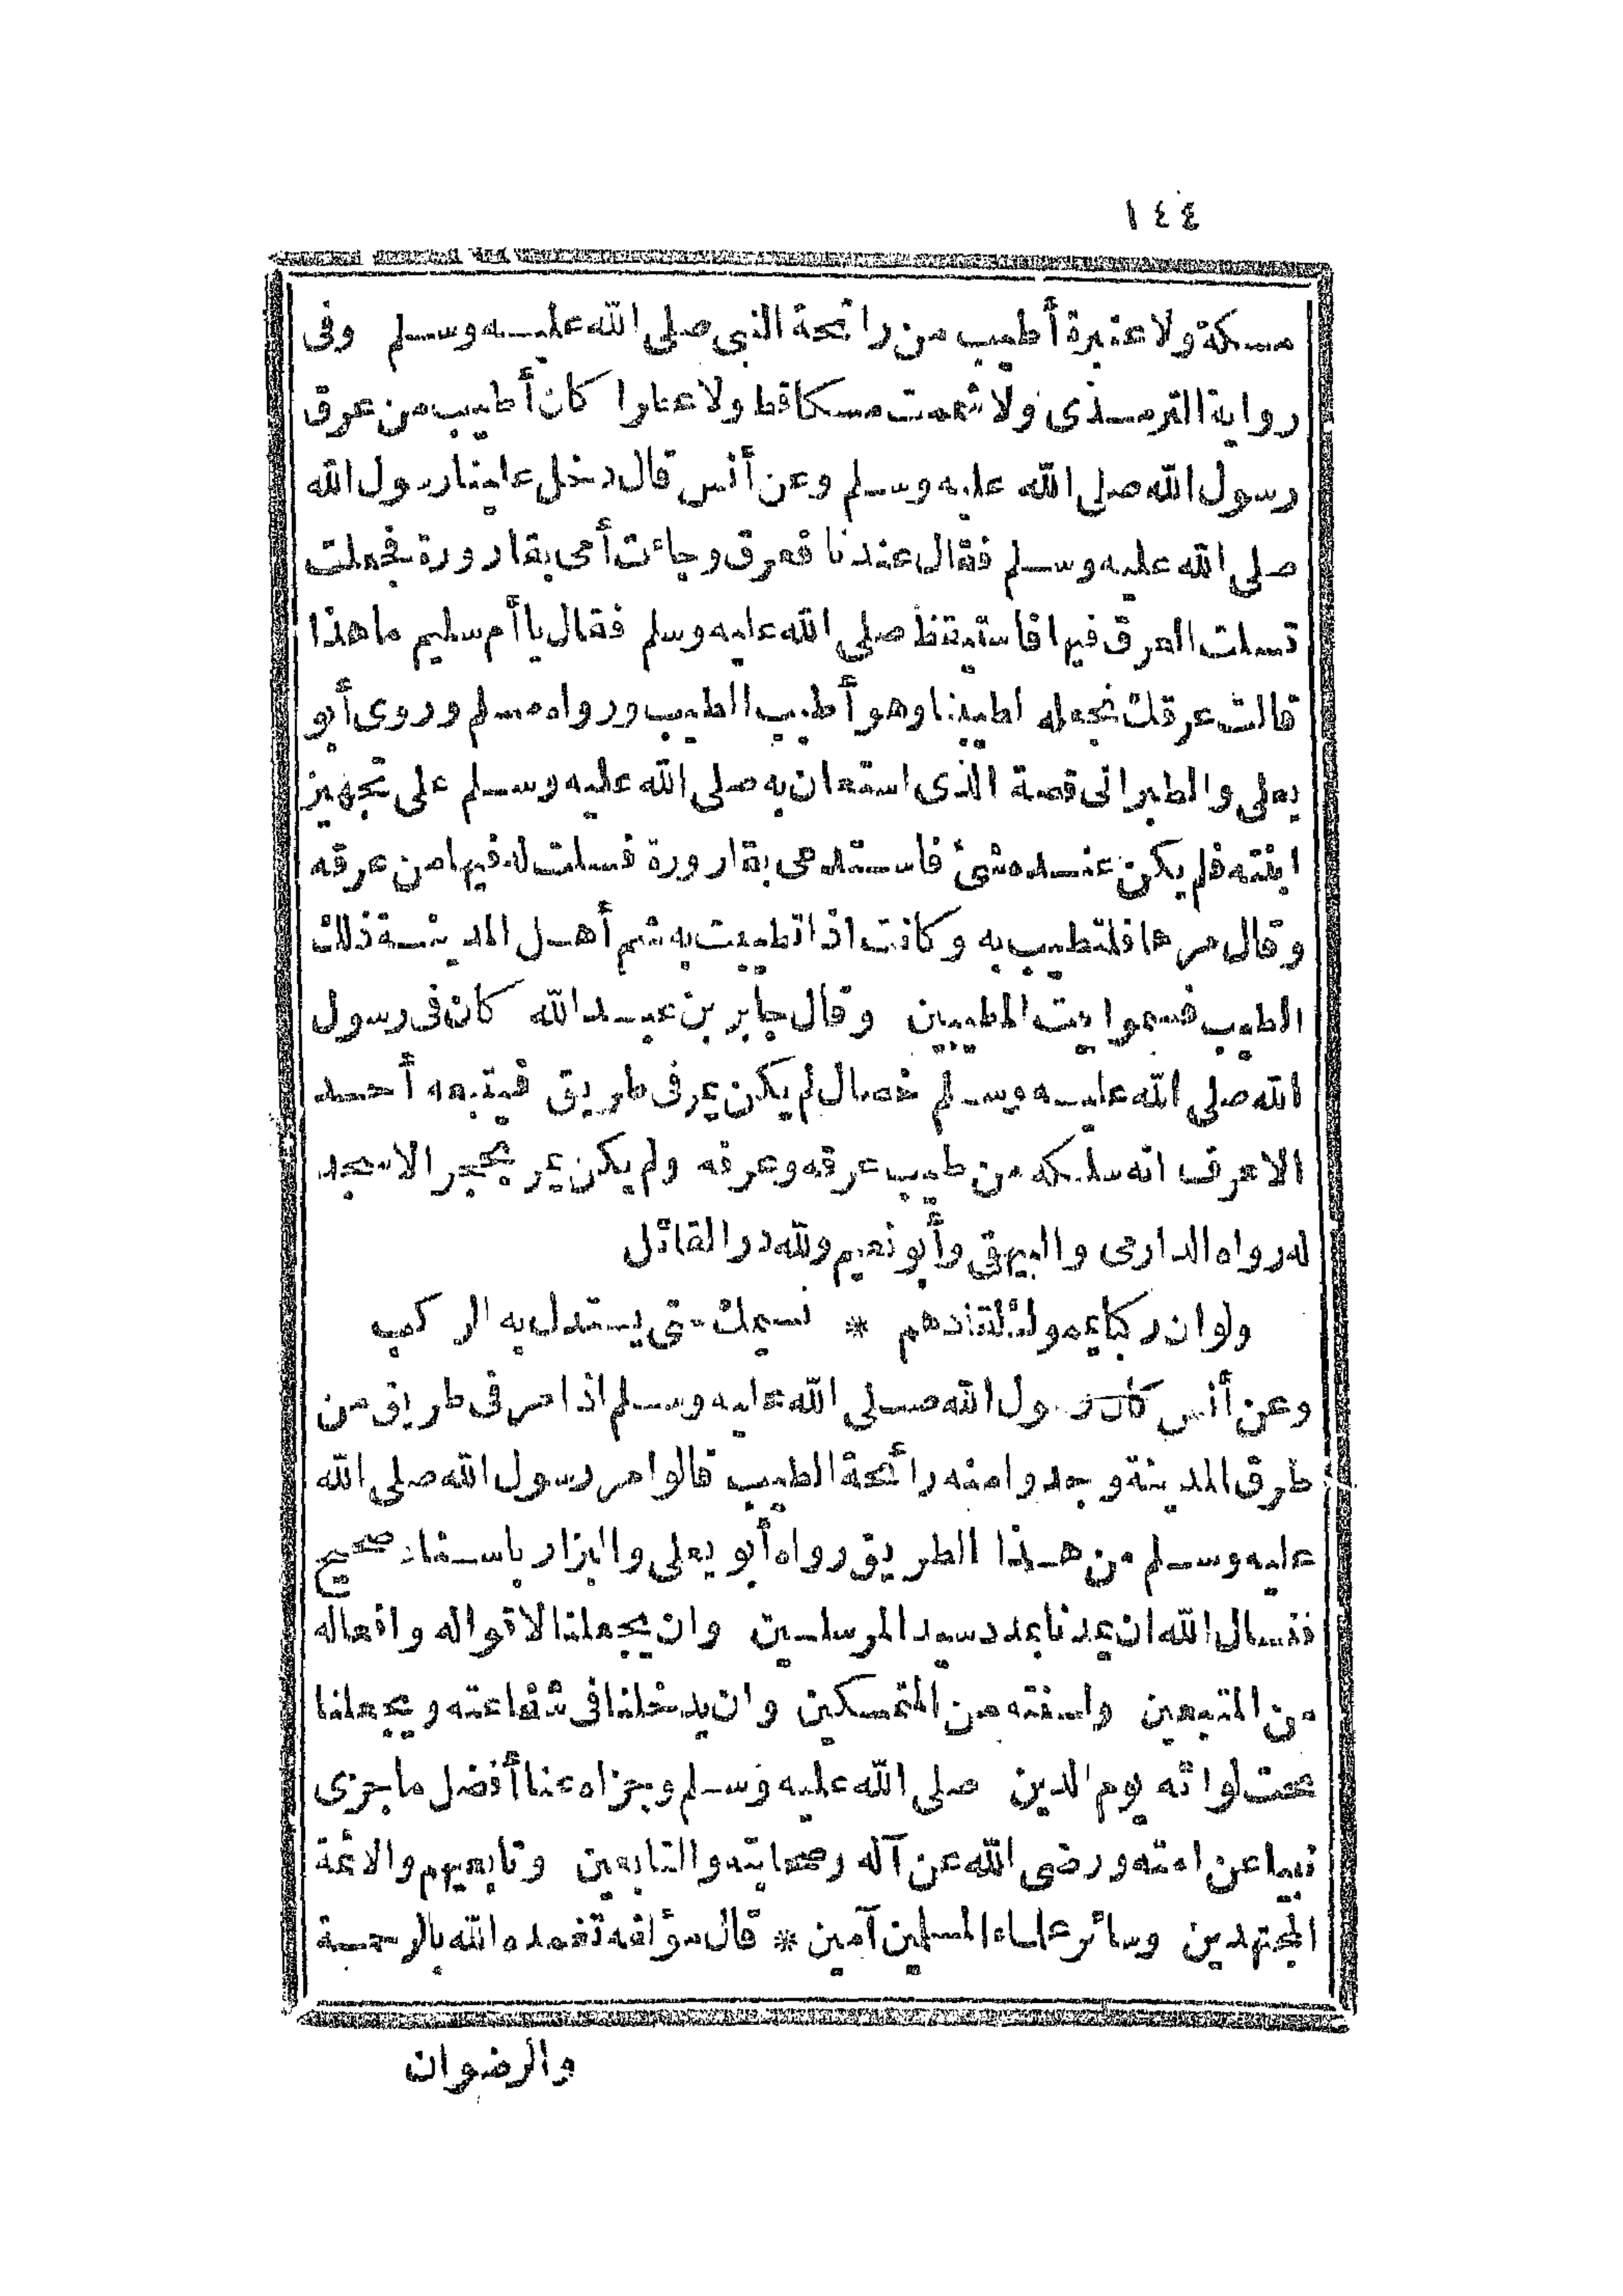 ١٤٤
مسكة ولا عنبرة أطيب من رائحة النبى صلى الله عليه وسلم وفى
رواية الترمذى ولا شممت مسكا قط ولا عطرا كان أطيب من عرق
رسول الله صلى الله عليه وسلم وعن أنس قال دخل علينا رسول الله
صلى الله عليه وسلم فقال عندنا فعرق وجائت أمى بقارورة فجعلت
تسلت العرق فيها فاستيقظ صلى الله عليه وسلم فقال يا أم سليم ما هذا
قالت عرقك نجعله لطيبنا وهو أطيب الطيب ورواه مسلم وروى أبو
يعلى والطبرانى قصة الذى استعان به صلى الله عليه وسلم على تجهيز
ابنته فلم يكن عنده شئ فاستدعى بقارورة فسلت له فيها من عرقه
وقال مرها فلتطيب به وكانت اذا تطيبت به شم أهل المدينة ذلك
الطيب فسموا بيت المطيبين وقال جابر بن عبد الله كان فى رسول
الله صلى الله عليه وسلم خصال لم يكن يمر فى طريق فيتبعه أحد
الا عرف انه سلكه من طيب عرقه وعرفه ولم يكن يمر بحجر الا سجد
له رواه الدارمى والبيهقى وأبو نعيم ولله در القائل
ولو ان ركبا يمموك لقادهم * نسيمك حتى يستدل به الركب
وعن أنس كان رسول الله صلى الله عليه وسلم اذا مر فى طريق من
طرق المدينة وجدوا منه رائحة الطيب قالوا مر رسول الله صلى الله
عليه وسلم من هذا الطريق رواه أبو يعلى والبزار باسناد صحيح
فنسال الله ان يمدنا بمدد سيد المرسلين وان يجعلنا لاقواله وافعاله
من المتبعين ولسنته من المتمسكين وان يدخلنا فى شفاعته ويجعلنا
تحت لوائه يوم الدين صلى الله عليه وسلم وجزاه عنا أفضل ما جزى
نبيا عن امته ورضى الله عن آله وصحابته والتابعين وتابعيهم والائمة
المجتهدين وسائر علماء المسلمين آمين * قال مؤلفه تغمده الله بالرحمة
والرضوان